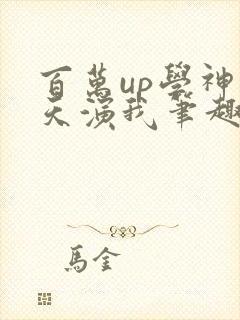 百萬up學神
天演我筆趣
馬金